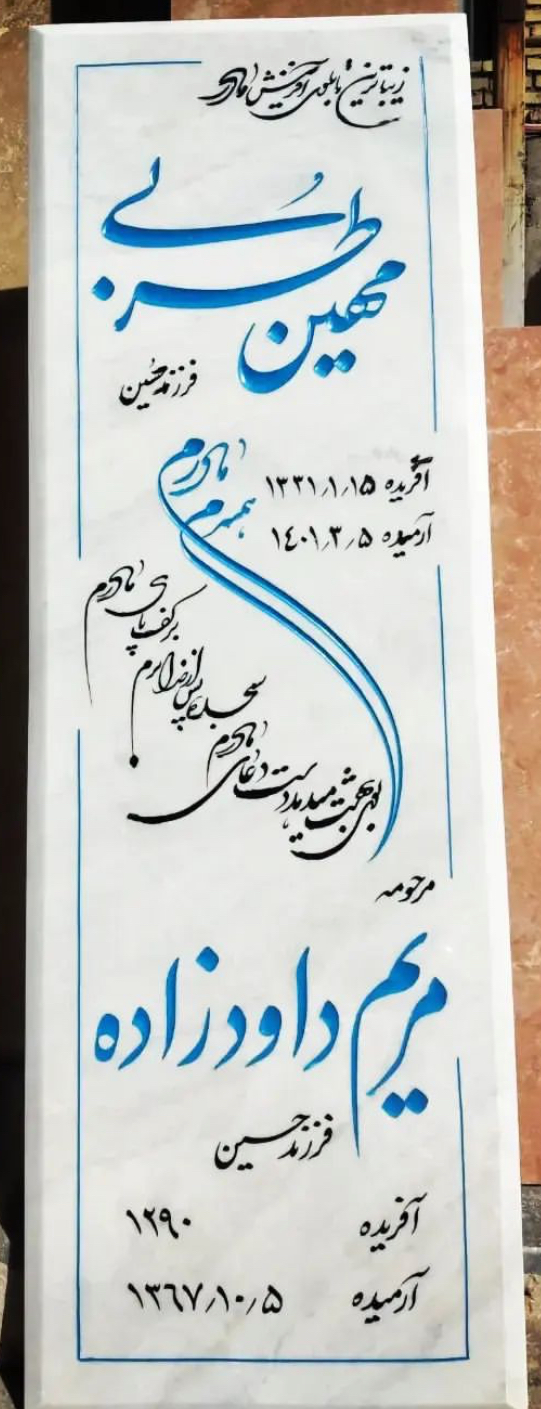 زیباترین تابلوی آفرینش مادر
مهین طربی
فرزند حسین
مادرم
همسرم
آفریده ۱۳۳۱/۱/۱۵
آرمیده ۱۴۰۱/۳/۵
بوی بهشت میدهد دست دعای مادرم
سجده پس از خدا برم
بر کف پای مادرم
مرحومه
مریم داودزاده
فرزند حسین
آفریده ۱۲۹۰
آرمیده ۱۳۶۷/۱۰/۵